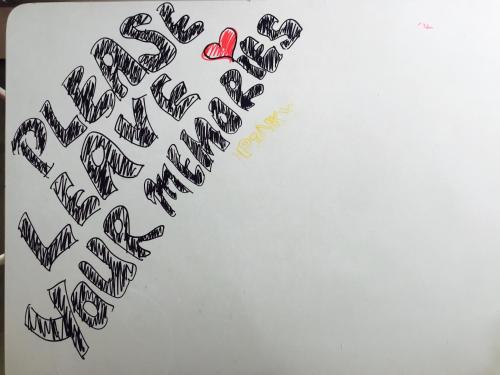 PLEASE
LEAVE
YOUR MEMORIES